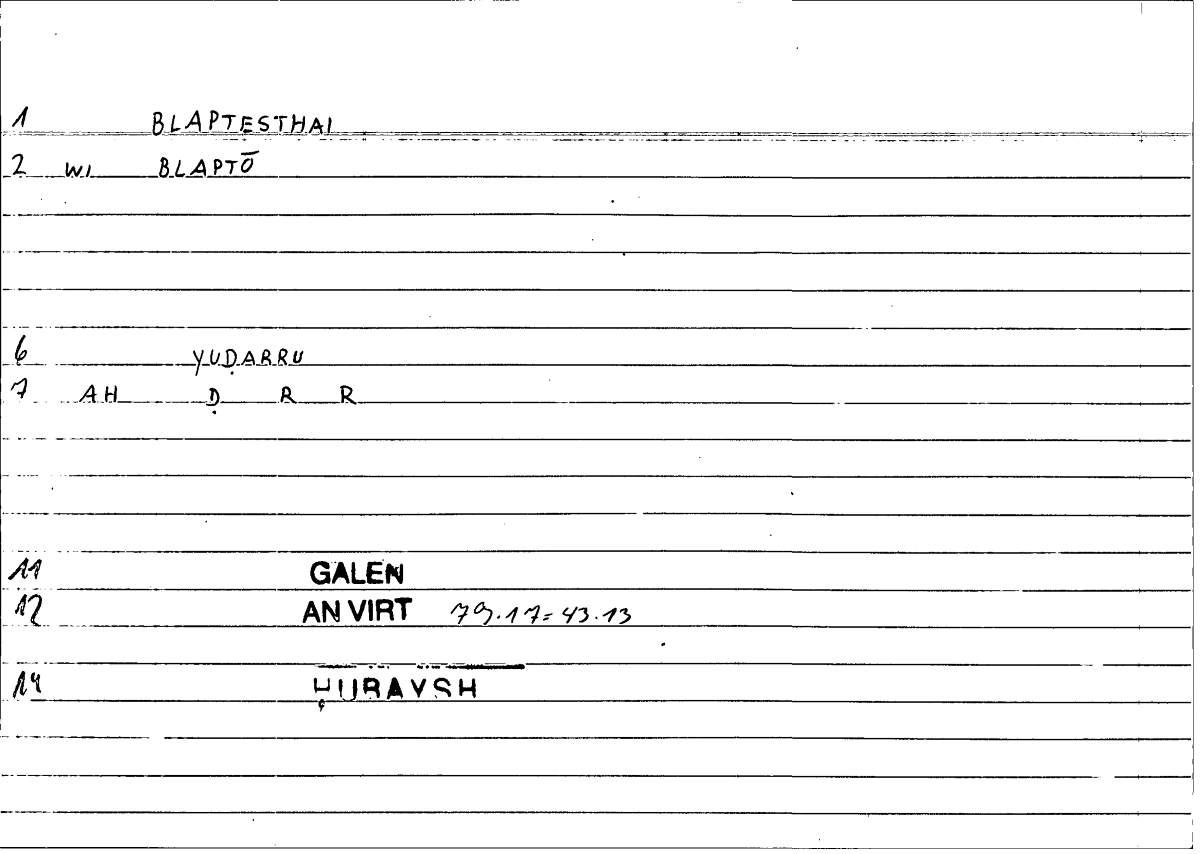 1 BLAPTESTHAI
2 WI BLAPTŌ
6 YUḌARRU
7 AH Ḍ R R
11 GALEN
12 AN VIRT 79.17=43.13
14 ḤURAYSH